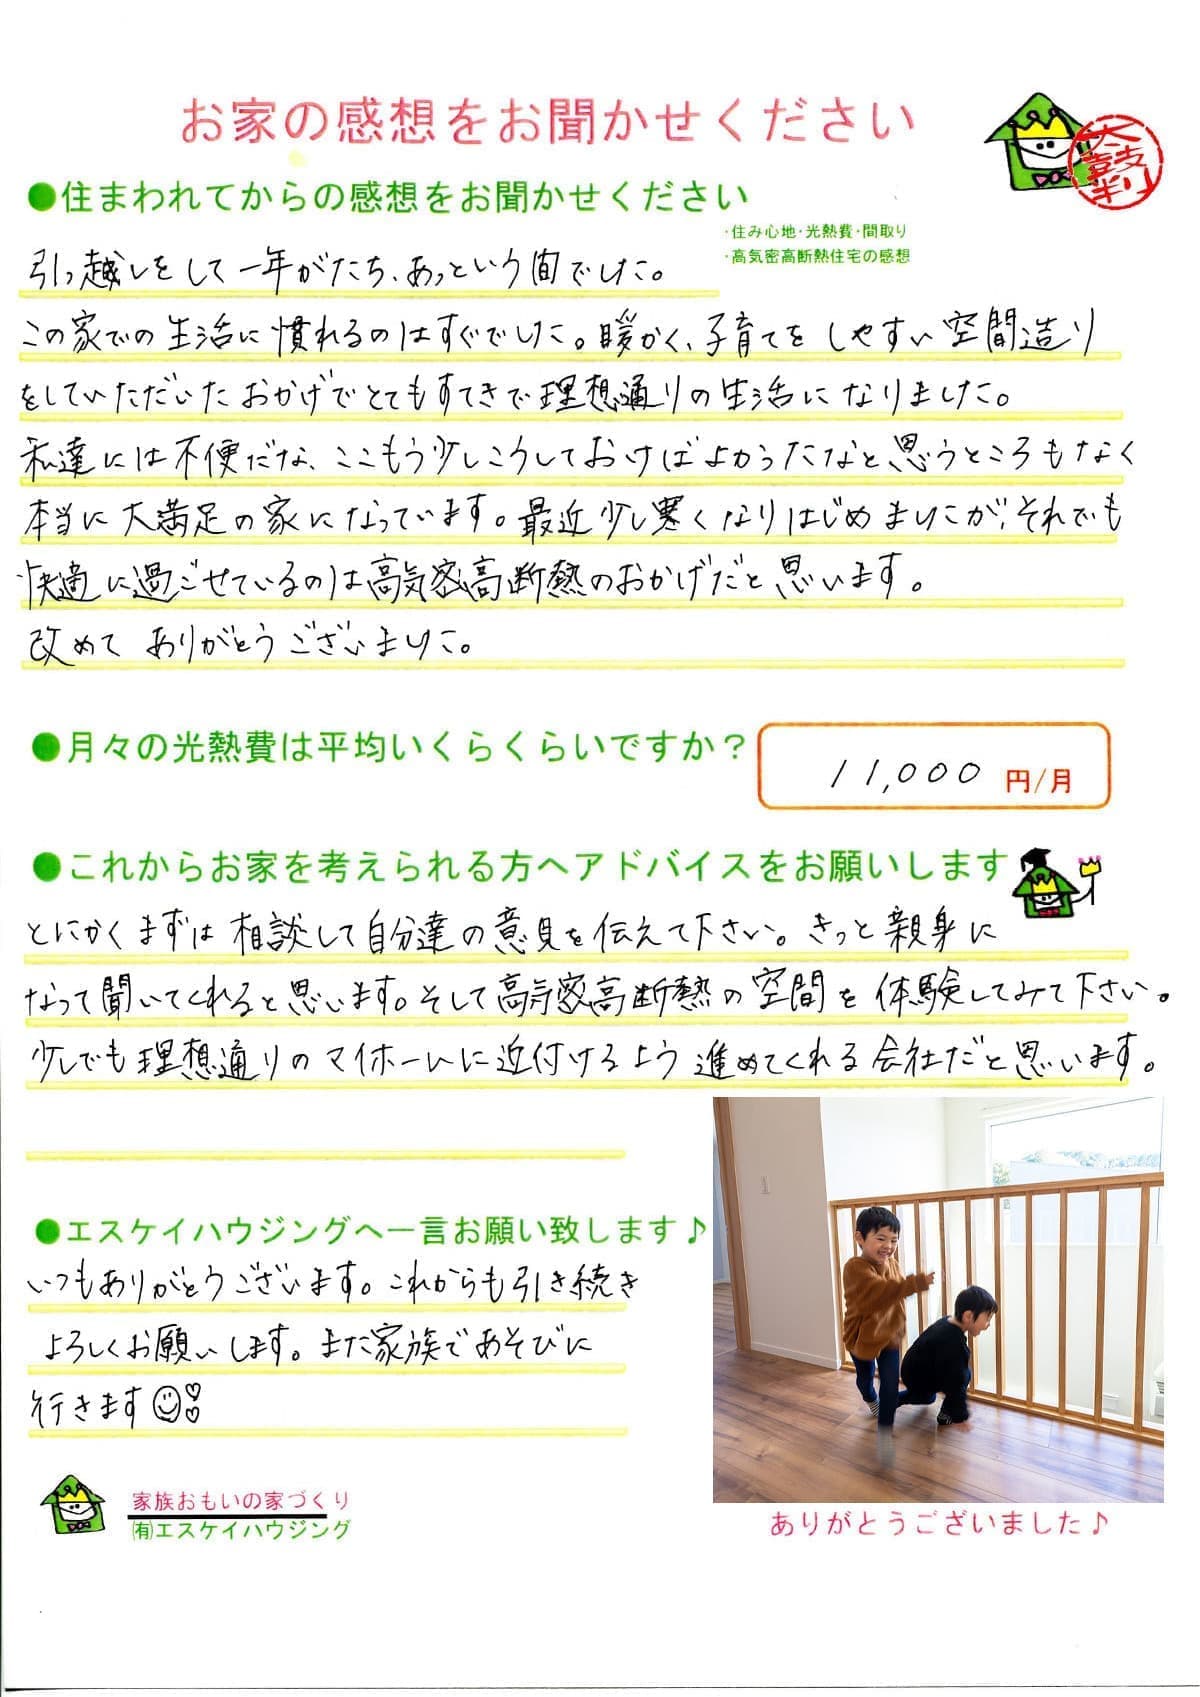 お家の感想をお聞かせください
太鼓判
●住まわれてからの感想をお聞かせください
・住み心地・光熱費・間取り
・高気密高断熱住宅の感想
引っ越しをして一年がたち、あっという間でした。
この家での生活に慣れるのはすぐでした。暖かく、子育てをしやすい空間造り
をしていただいたおかげでとてもすてきで理想通りの生活になりました。
私達には不便だな、ここもう少しこうしておけばよかったなと思うところもなく
本当に大満足の家になっています。最近少し寒くなりはじめましたが、それでも
快適に過ごせているのは高気密高断熱のおかげだと思います。
改めてありがとうございました。
●月々の光熱費は平均いくらくらいですか？
11,000 円/月
●これからお家を考えられる方へアドバイスをお願いします
とにかくまずは相談して自分達の意見を伝えて下さい。きっと親身に
なって聞いてくれると思います。そして高気密高断熱の空間を体験してみて下さい。
少しでも理想通りのマイホームに近付けるよう進めてくれる会社だと思います。
●エスケイハウジングへ一言お願い致します♪
いつもありがとうございます。これからも引き続き
よろしくお願いします。また家族であそびに
行きます
家族おもいの家づくり
㈲エスケイハウジング
ありがとうございました♪